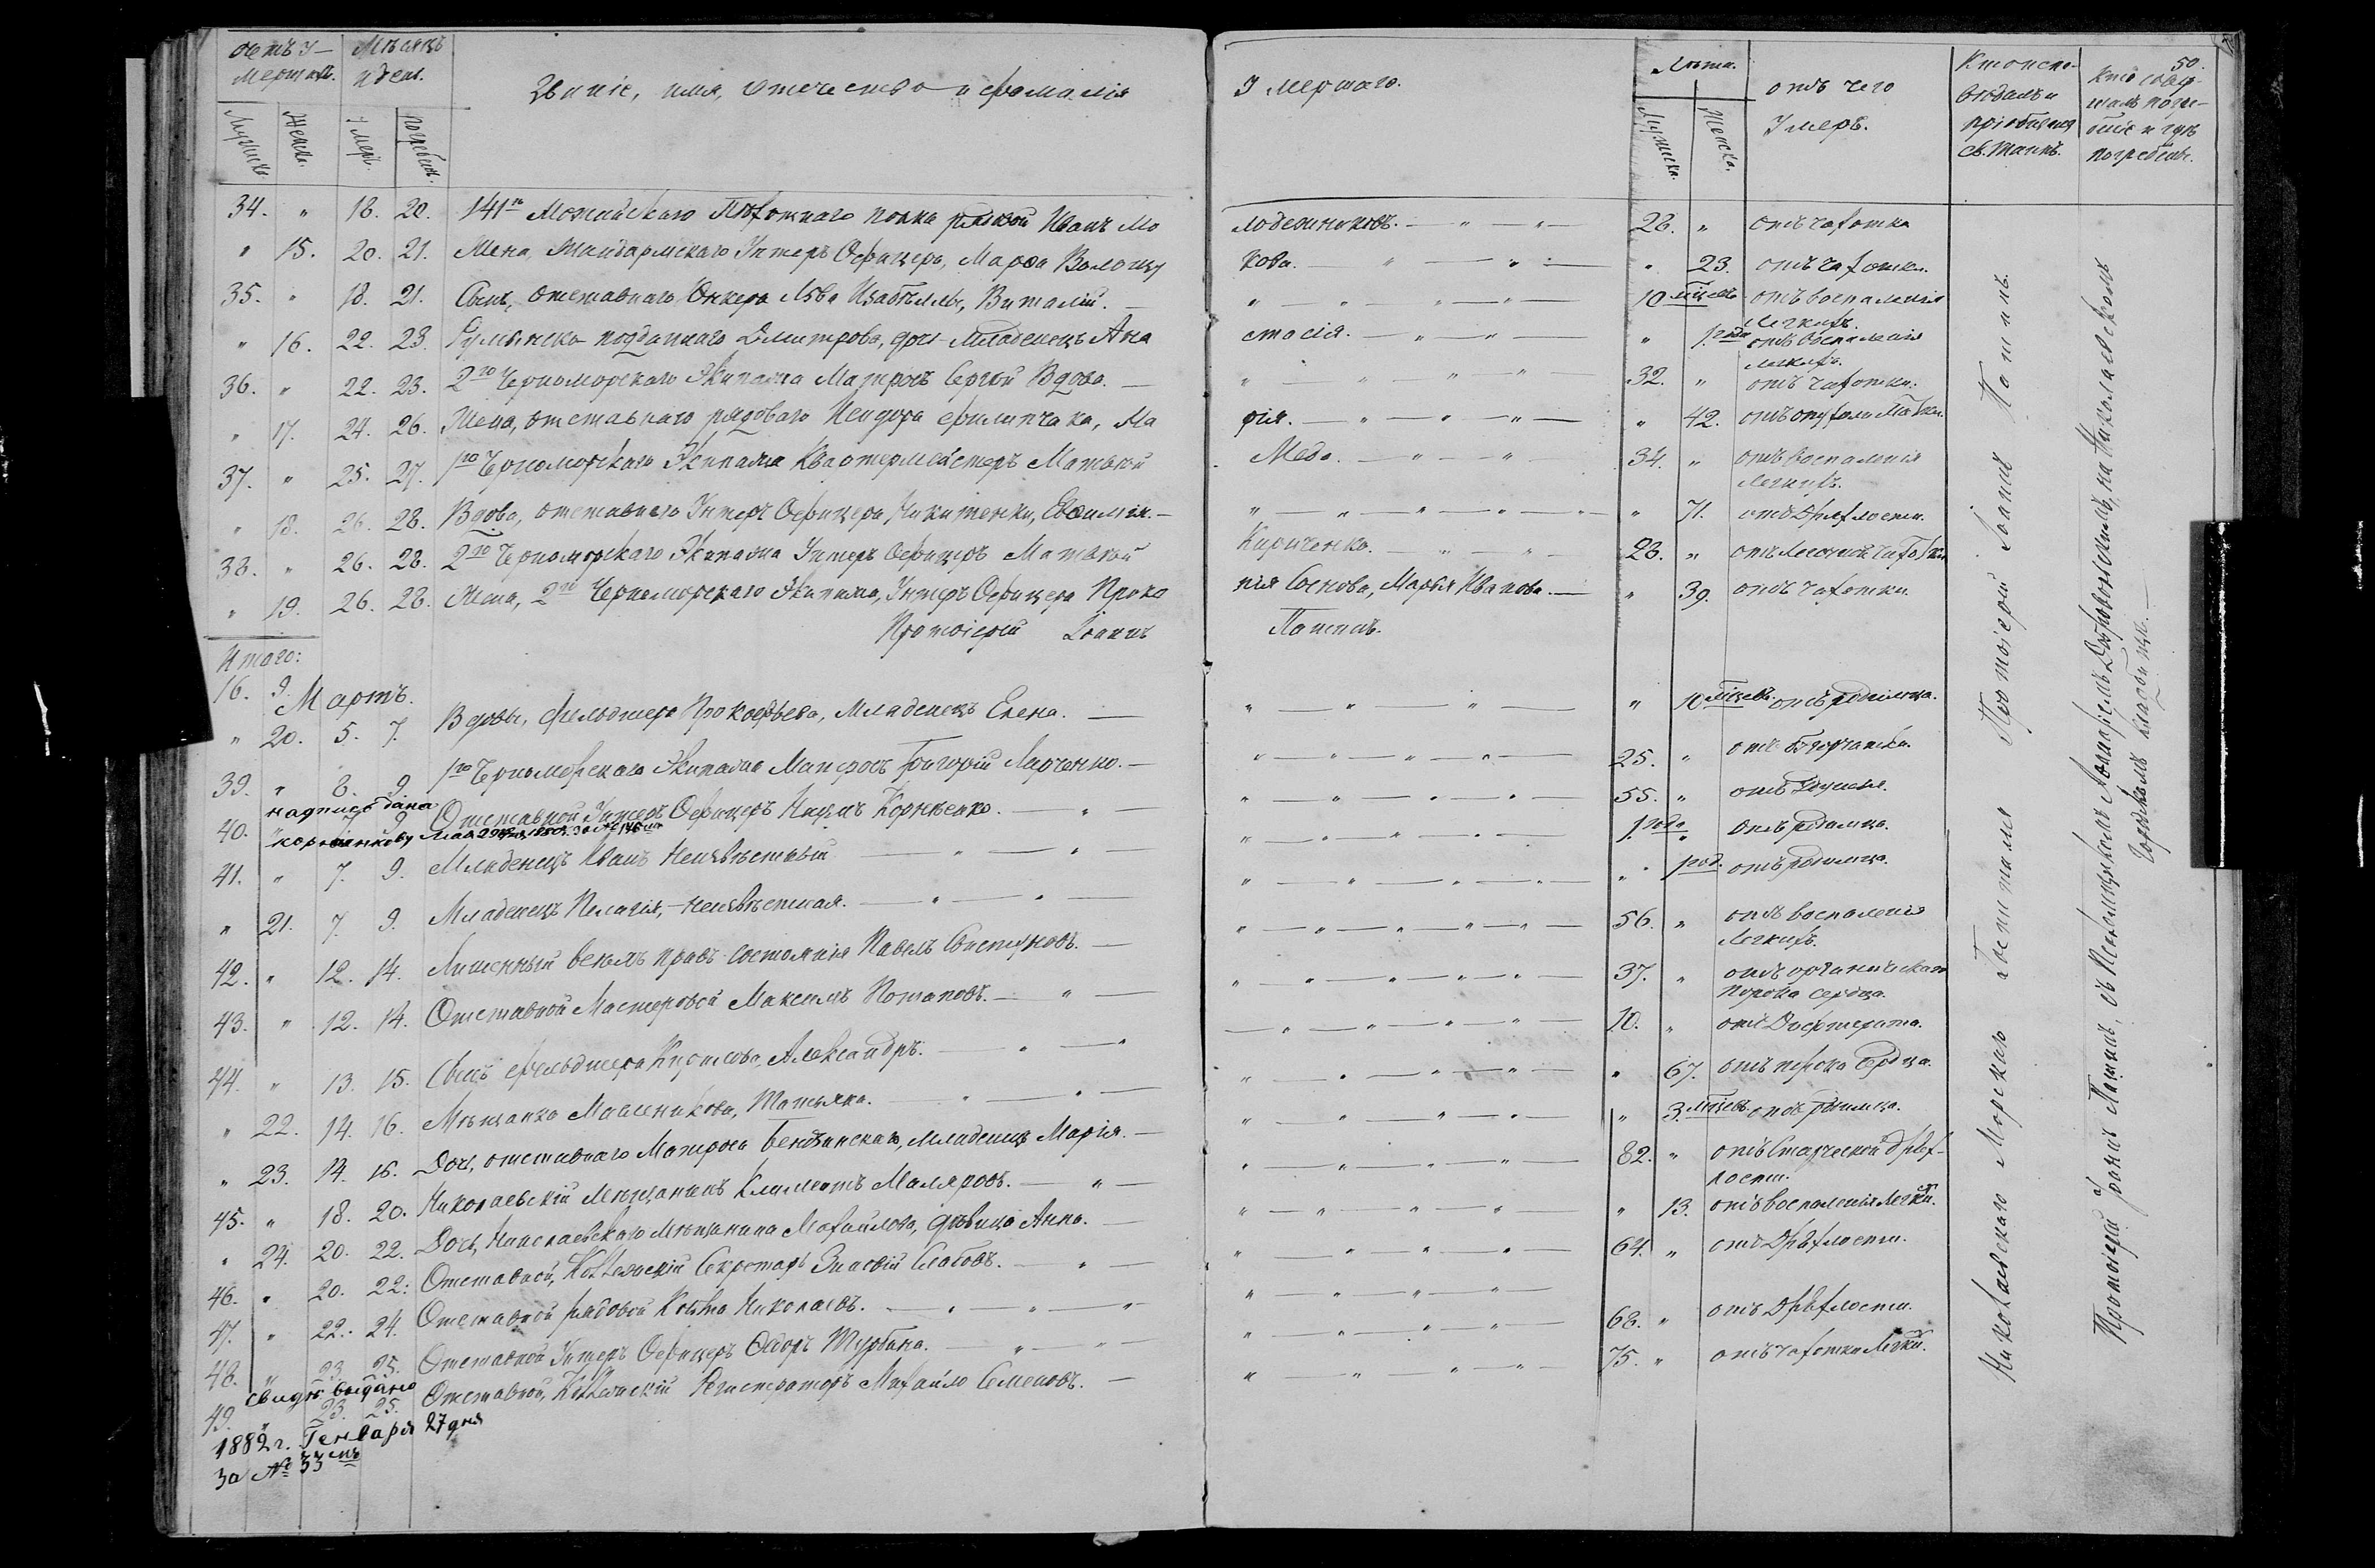 50.
Счетъ у-
мершихъ.
Мѣсяцъ
и день.
Званіе, имя, отечество и фамилія
умершаго.
Лѣта.
отъ чего
умеръ.
Кто испо-
вѣдалъ и
пріобщалъ
св. таинъ.
Кто совер-
шалъ погре-
беніе и гдѣ
погребены.
Мужска.
Женска.
умер.
погребен.
Мужска.
Женска.
34. " 18. 20. 141го Можайскаго Пѣхотнаго полка рядовой Иванъ Мо лодежниковъ. — " — " — 28. " отъ чахотки
" 15. 20. 21. Жена, Жандармскаго Унтеръ Офицера, Марѳа Волощу кова. — " — " — " 23. отъ чахотки.
35. " 18. 21. Сынъ, отставнаго Юнкера Льва Виталій. — 10 мѣсцевъ отъ воспаленія
легкихъ.
" 16. 22. 23. подданнаго Дмитрова, дочь младенецъ Ана стасія. — " — " — " 1. года отъ воспаленія
легкихъ.
36. " 22. 23. 2го Черноморскаго Экипажа Матросъ Сергѣй Вдово. — 32. " отъ чахотки.
" 17. 24. 26. Жена, отставнаго рядоваго Исидора Филипчака, Ма рія. — " — " — " — " 42. отъ опухоли
37. " 25. 27. 1го Черноморскаго Экипажа Квартермейстеръ Матвѣй Медо. — " — " — 34. " отъ воспаленія
легкихъ.
" 18. 26. 28. Вдова, отставнаго Унтеръ Офицера Никитенки, Евѳимія. — " 71. отъ дряхлости.
38. " 26. 28. 2го Черноморскаго Экипажа Унтеръ Офицеръ Матвѣй Кириченко. — " — " — 28. " отъ легочной чахотки
" 19. 26. 28. Жена, 2го Черноморскаго Экипажа, Унтеръ Офицера Проко пія Соснова, Марѳа Иванова. — " 39. отъ чахотки.
Протоіерей Іоаннъ Патинъ.
Итого:
16. 9.
Мартъ.
" 20. 5. 7. Вдовы, Фельдшера Прокофьева, младенецъ Елена. — " 10 мѣсцевъ отъ родимца.
39. " 8. 9. 1го Черноморскаго Экипажа Матросъ Григорій Марченко. — 25. "
надпись дана
40. " 7. 9. Отставной Унтеръ Офицеръ Наумъ Корніенко. — " — 55. "
Корніенкову Мая
41. " 7. 9. Младенецъ Иванъ Неизвѣстный — " — " — 1. года " отъ родимца.
" 21. 7. 9. Младенецъ Пелагія, Неизвѣстная. — " — " — " 1 год. отъ родимца.
42. " 12. 14. Лишенный всѣхъ правъ состоянія Павелъ — 56. " отъ воспаленія
легкихъ.
43. " 12. 14. Отставной Мастеровой Максимъ Потаповъ. — " — 37. " отъ органическаго
порока сердца.
44. " 13. 15. Сынъ фельдшера Кирилова, Александръ. — " — 10. " отъ Дифтерита.
" 22. 14. 16. Мѣщанка Масленикова, Татьяна. — " — " — " 67. отъ порока сердца.
" 23. 14. 16. Дочь, отставнаго Матроса младенецъ Марія. — " 3. мѣсцевъ отъ родимца.
45. " 18. 20. Николаевскій Мѣщанинъ Климентъ Маляровъ. — " — 82. " отъ старческой дрях-
лости.
" 24. 20. 22. Дочь, Николаевскаго Мѣщанина Михайлова, дѣвица Анна. — " 13. отъ воспаленія легких.
46. " 20. 22. Отставной, Коллежскій Секретарь Зиновій — " — 64. " отъ дряхлости.
47. " 22. 24. Отставной рядовой Козьма Николаевъ. — " — " —
48. " 23. 25. Отставной Унтеръ Офицеръ Ѳедоръ Турбина. — " — 68. " отъ дряхлости.
Свидѣт. выдано
49. " 23. 25. Отставной, Коллежскій Регистраторъ Михайло Семеновъ. — 75. " отъ чахотки легких.
1882 г. Генваря 27 дня
за № 33мъ
Николаевскаго Морскаго госпиталя Протоіерей Іоаннъ Патинъ.
Протоіерей Іоаннъ Патинъ, съ Псаломщикомъ на Николаевскомъ
Городскомъ кладбищѣ. —